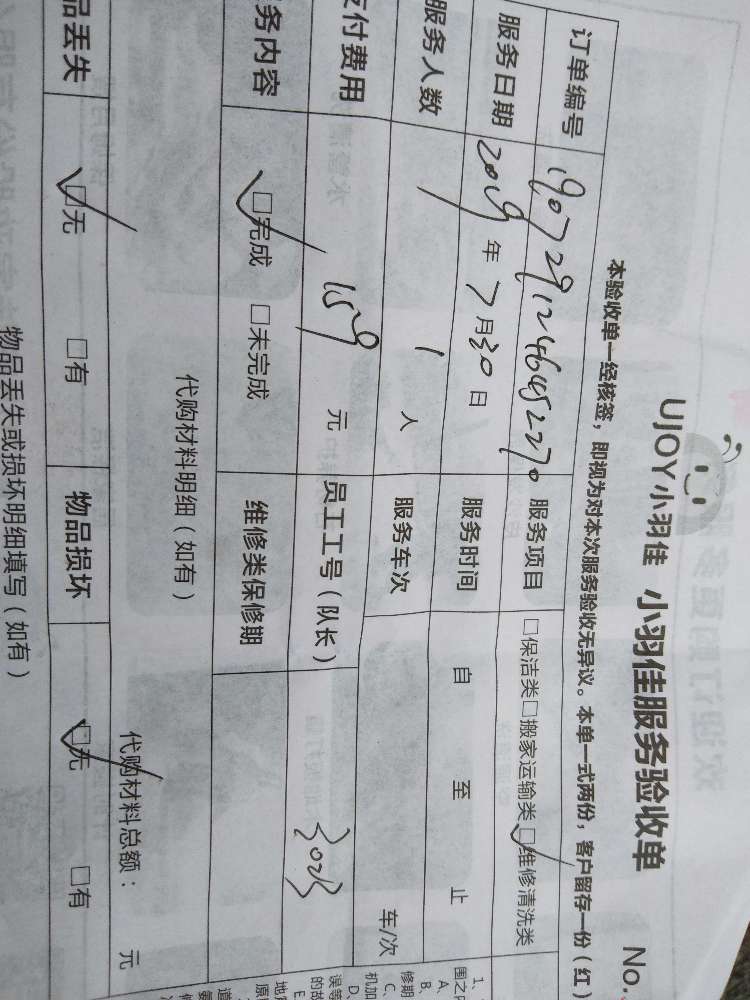 No.
UJOY小羽佳 小羽佳服务验收单
本验收单一经核签，即视为对本次服务验收无异议。本单一式两份，客户留存一份（红）
订单编号 服务项目 □保洁类□搬家运输类☑维修清洗类
服务日期 2019年7月30日 服务时间 自 至 止
服务人数 1人 服务车次 车/次
支付费用 159元 员工工号（队长）
务内容 ☑完成 □未完成 维修类保修期
代购材料明细（如有） 代购材料总额： 元
品丢失 ☑无 □有 物品损坏 ☑无 □有
物品丢失或损坏明细填写（如有）